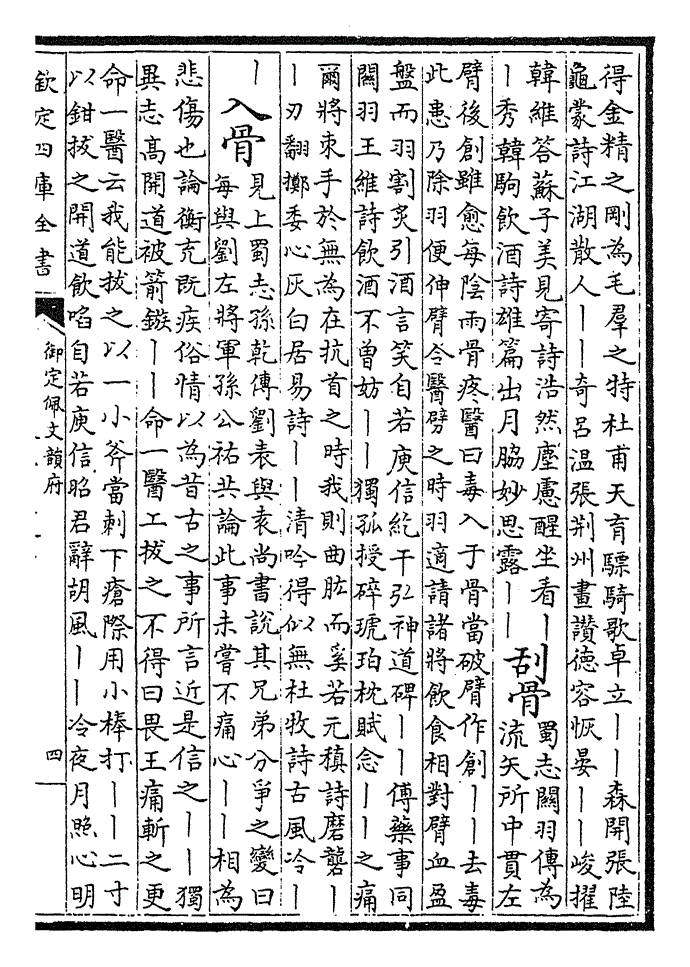 得金精之剛為毛羣之特杜甫天育驃騎歌卓立丨丨森開張陸
龜蒙詩江湖散人丨丨奇呂温張荆州畫讚德容恢晏丨丨峻擢
韓維答蘇子美見寄詩浩然塵慮醒坐看丨
丨秀韓駒飲酒詩雄篇出月脇妙思露丨丨
刮骨
蜀志關羽傳為
流矢所中貫左
臂後創雖愈每陰雨骨疼醫曰毒入于骨當破臂作創丨丨去毒
此患乃除羽便伸臂令醫劈之時羽適請諸將飲食相對臂血盈
盤而羽割炙引酒言笑自若庾信紇干弘神道碑丨丨傅藥事同
關羽王維詩飲酒不曾妨丨丨獨孤授碎琥珀枕賦念丨丨之痛
爾將束手於無為在抗首之時我則曲肱而奚若元稹詩磨礱丨
丨刃翻擲委心灰白居易詩丨丨清吟得似無杜牧詩古風冷丨
丨
入骨
見上蜀志孫乾傳劉表與袁尚書說其兄弟分爭之變曰
每與劉左將軍孫公祐共論此事未嘗不痛心丨丨相為
悲傷也論衡充既疾俗情以為昔古之事所言近是信之丨丨獨
異志高開道被箭鏃丨丨命一醫工拔之不得曰畏王痛斬之更
命一醫云我能拔之以一小斧當刺下瘡際用小棒打丨丨二寸
以鉗拔之開道飲啗自若庾信昭君辭胡風丨丨冷夜月照心明
欽定四庫全書
御定佩文韻府
四